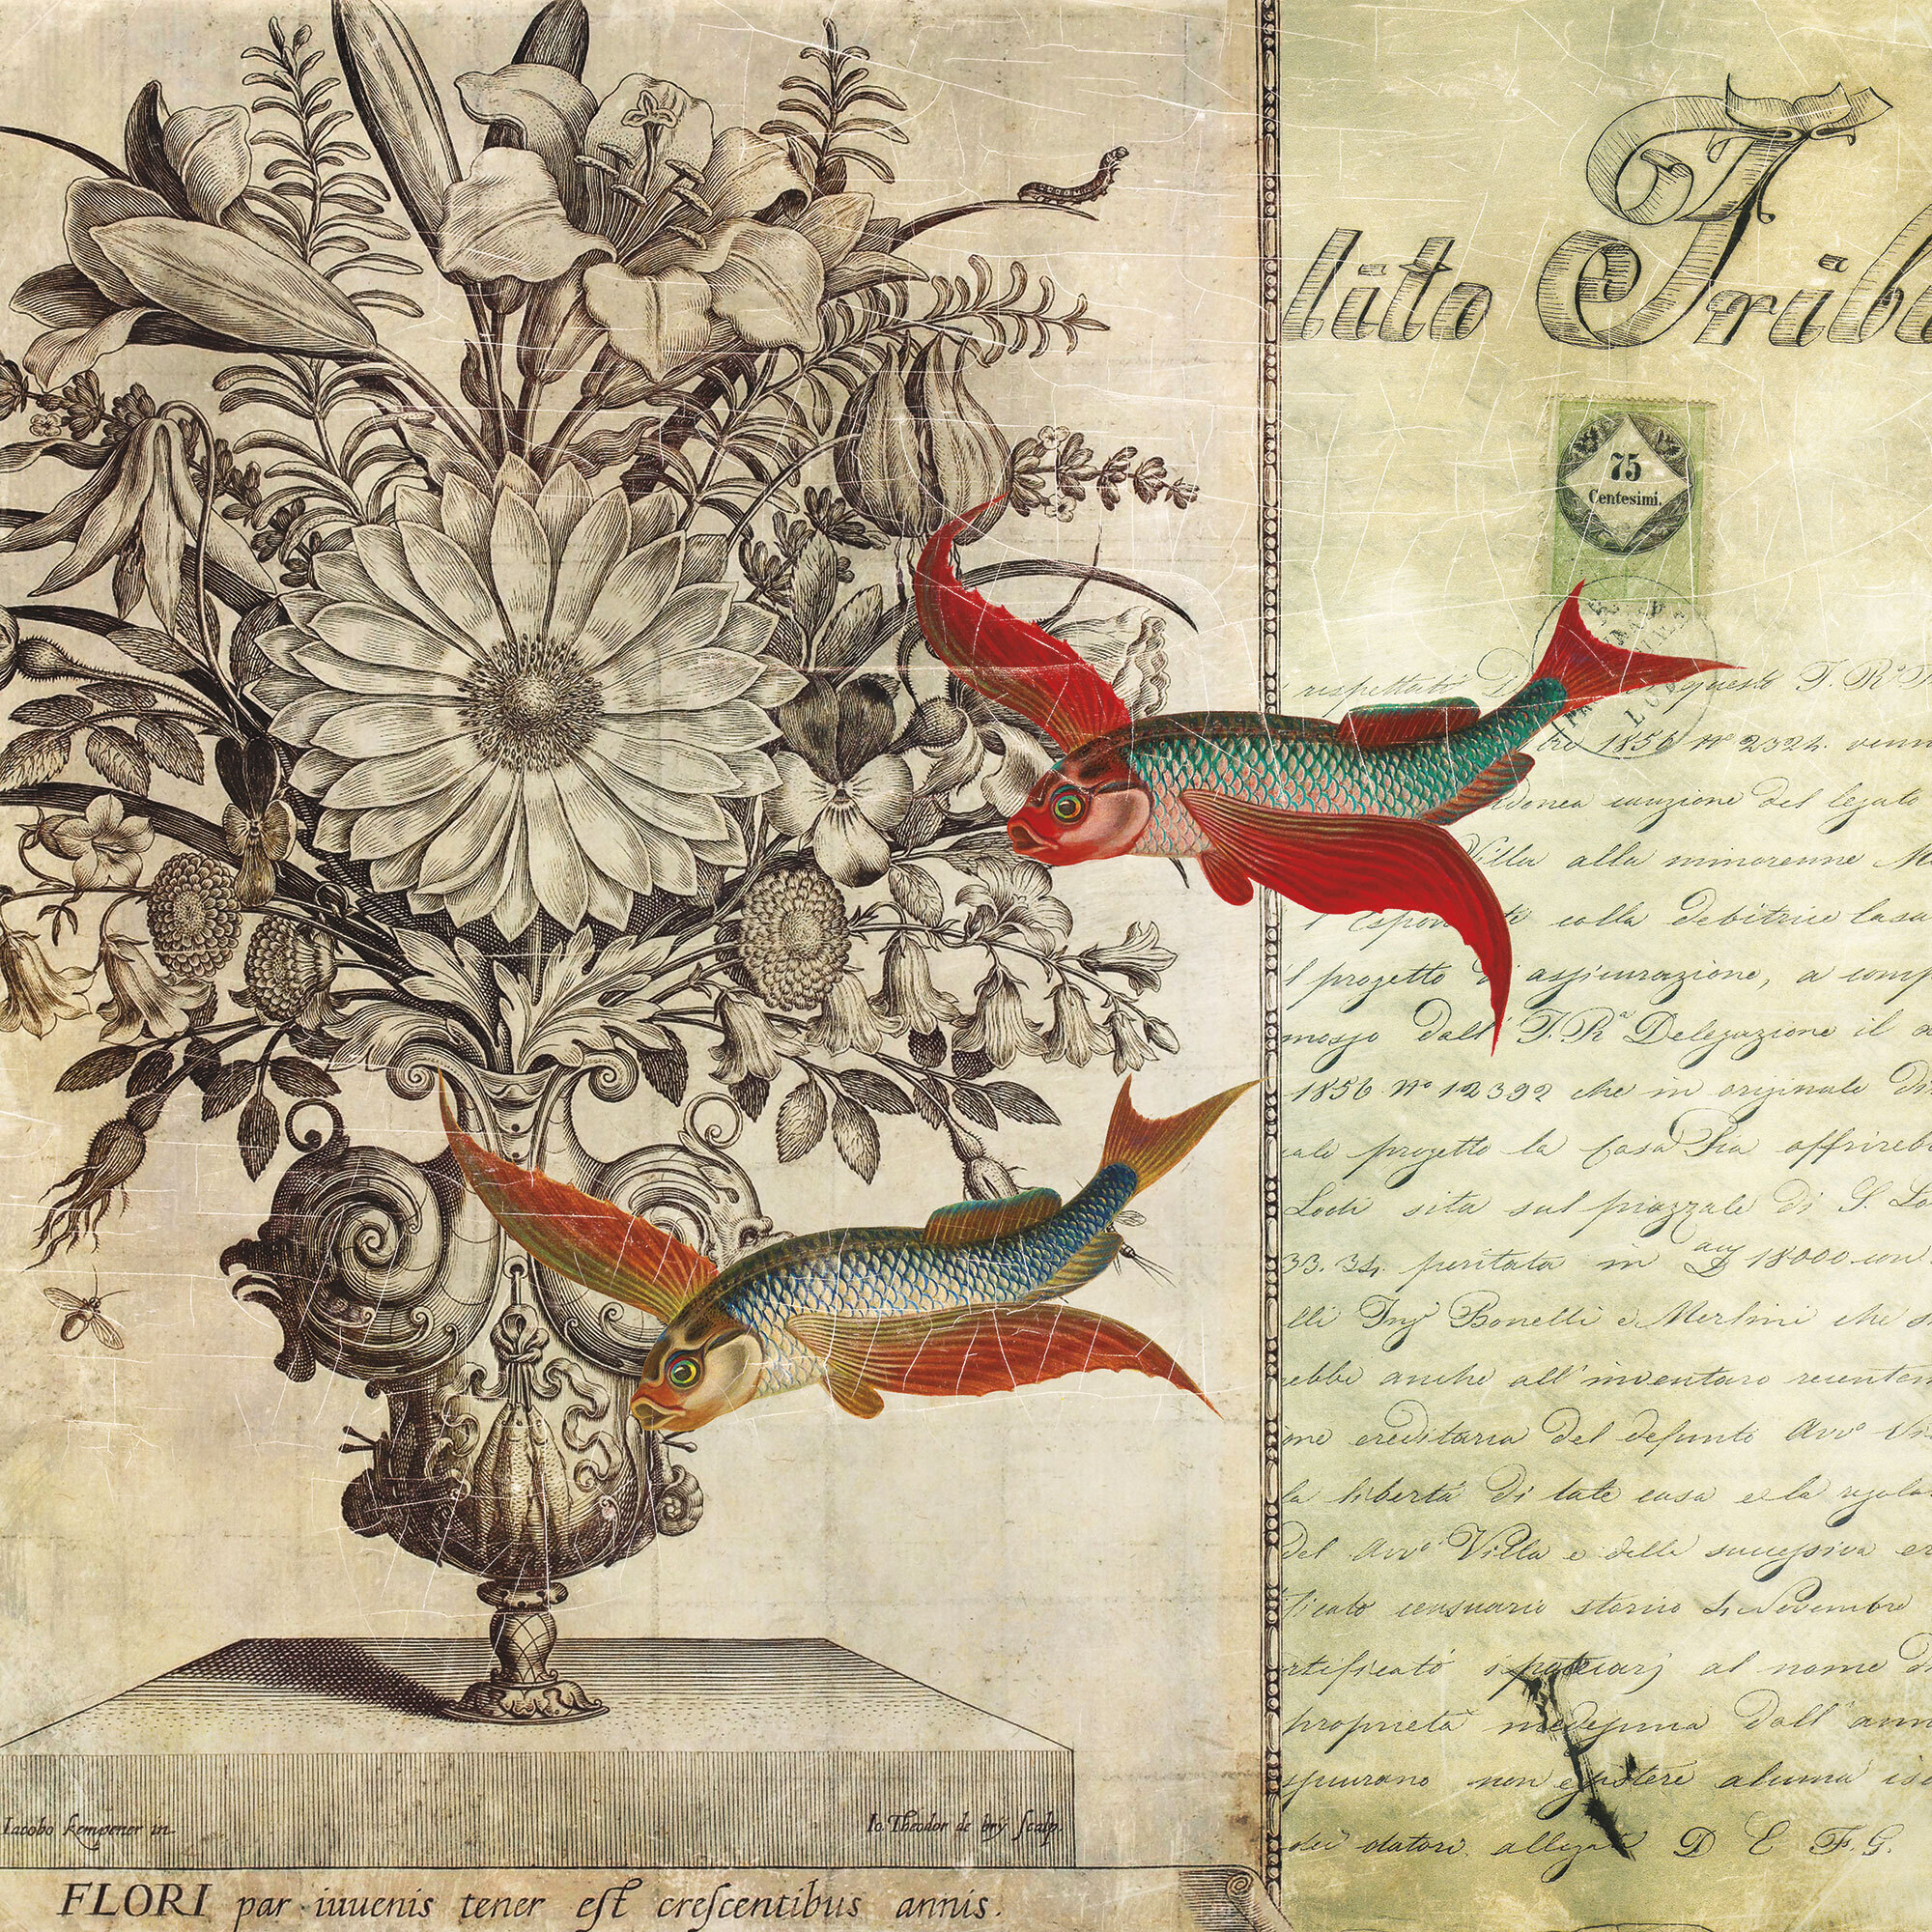 lito Tribu
75
Centesimi.
rispettato questo I. R.
1856 N° 2324. venn
idonea cauzione del legato
Villa alla minorenne M
Espon ti colla debitrice Casa
l progetto di assicurazione, a comp
messo dall' I. Rª Delegazione il
1856 N° 12392 che in originale Di
ale progetto la Casa Pia offrireb
Lodi sita sul piazzale di S. Lo
33. 34. peritata in 18000 con
lli Ingi Bonelli e Merlini che s
ebbe anche all' inventaro recentem
one ereditaria del defunto Avvo Vi
la libertà di tale casa e la regola
del Avvo Villa e delle successive er
ficato censuario storico 4 Novembre
rtificati ipotecarj al nome d
proprietà medesima dall' ann
spurano non esistere alcuna is
dei datori. D E F. G.
Iacobo kempener in
Io. Theodor de brÿ ſcalp.
FLORI par iuuenis tener eſt creſcentibus annis.